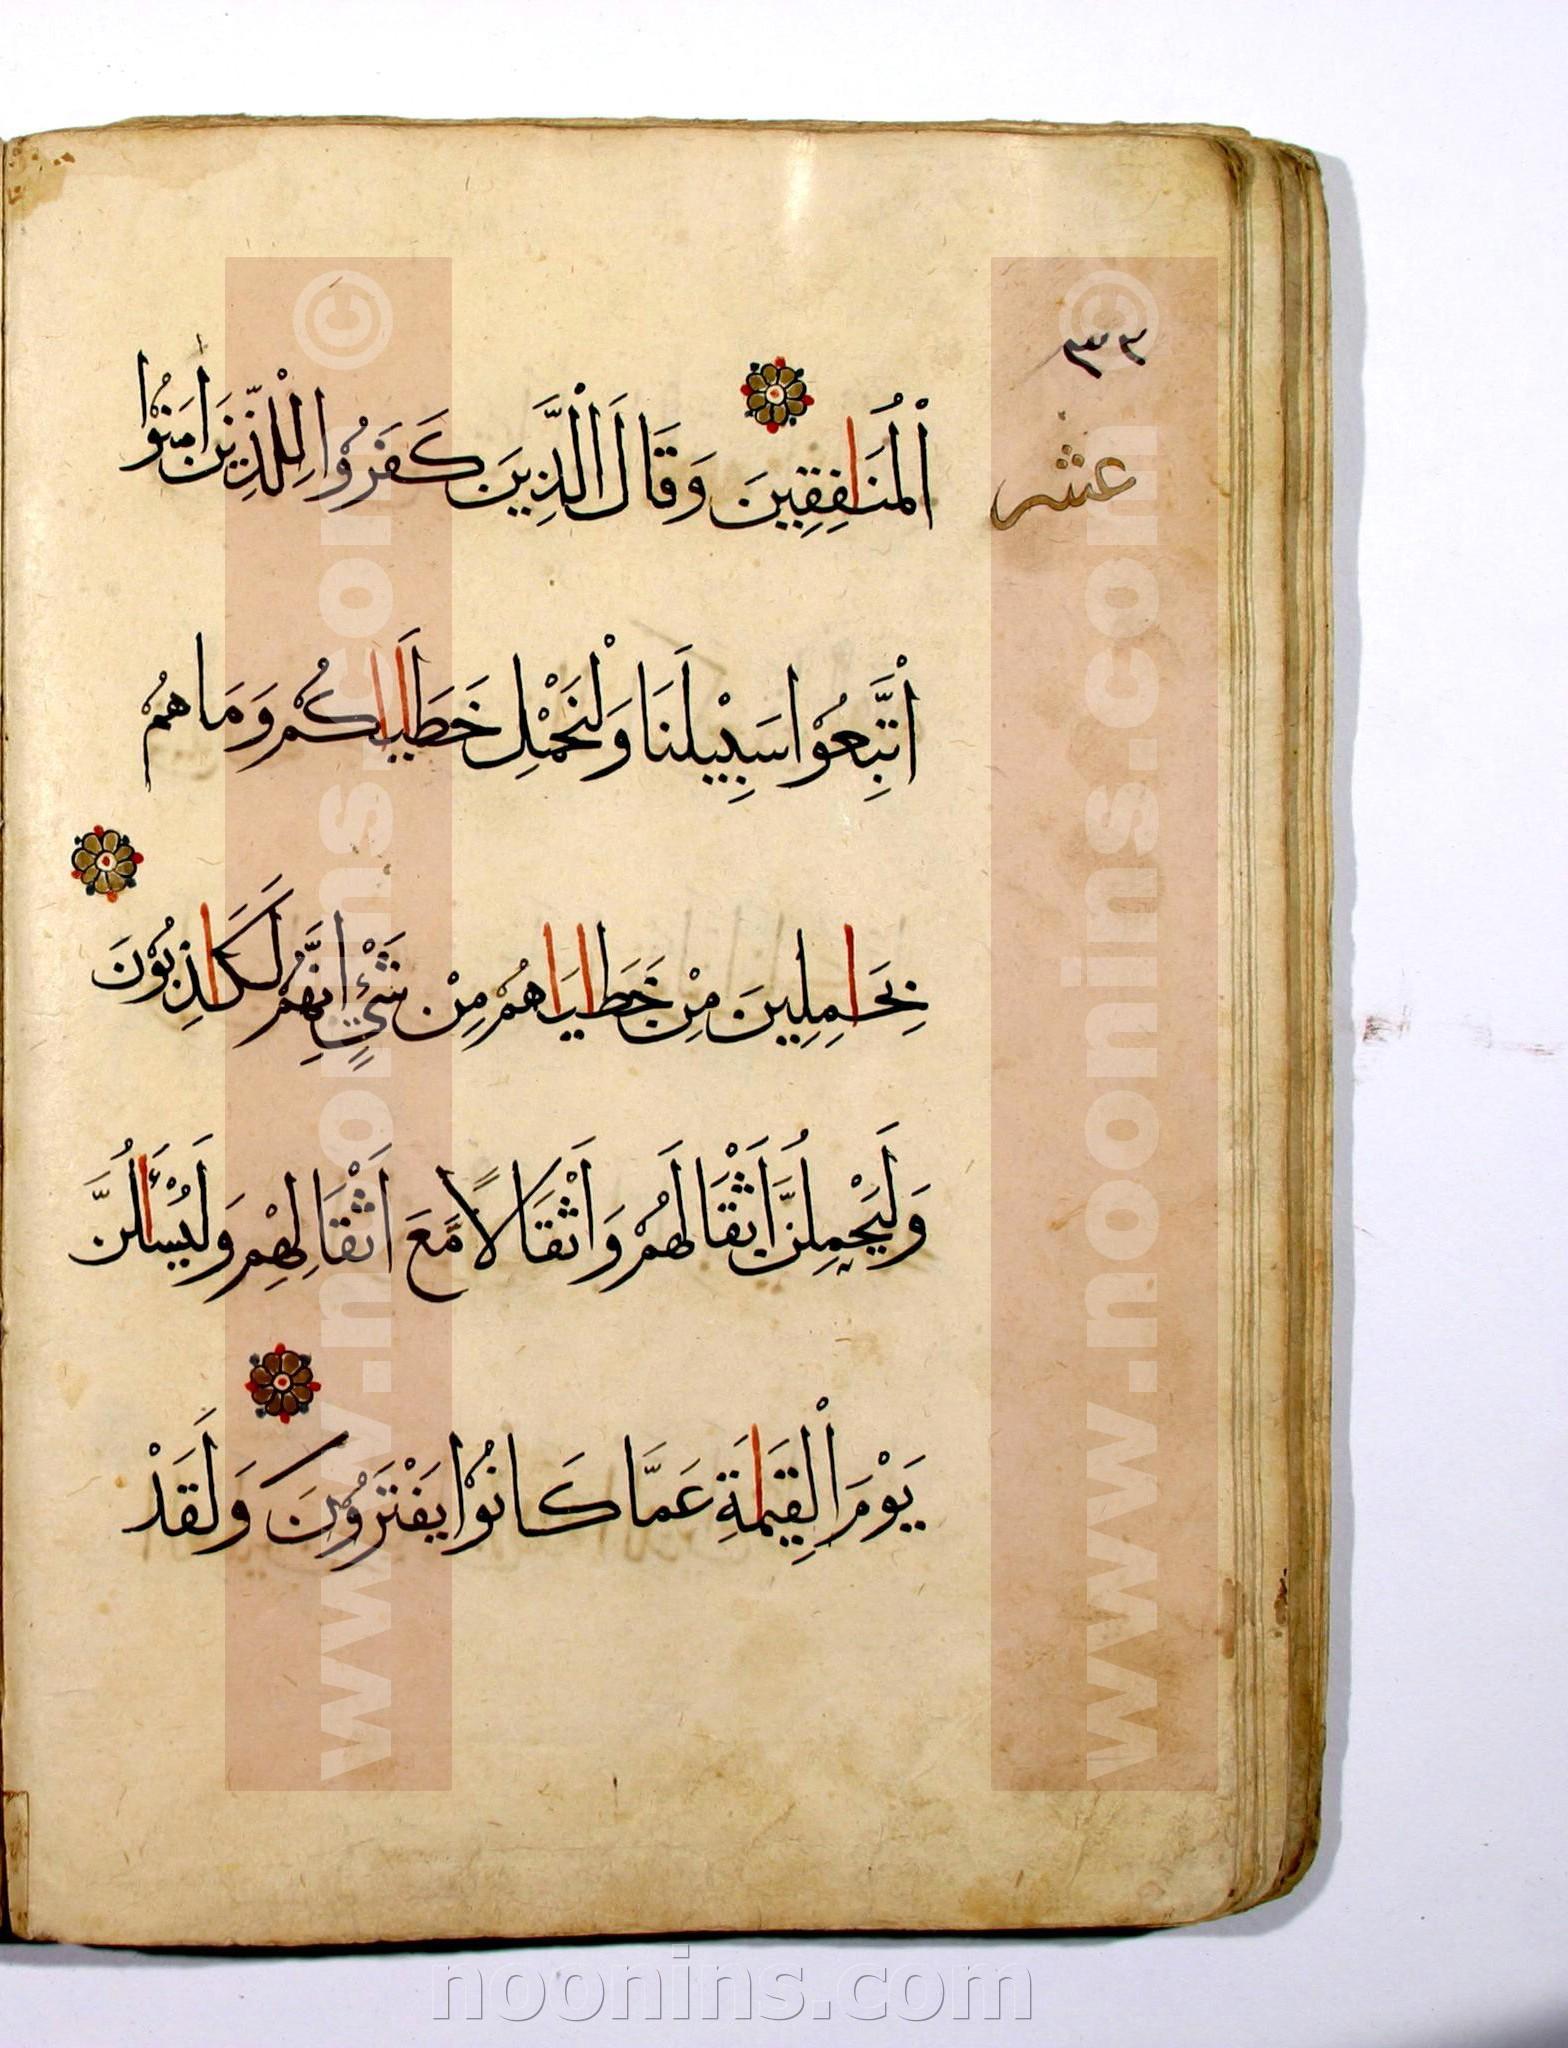 ٣٣
عشر
اَلْمُنَافِقِينَ وَقَالَ الَّذِينَ كَفَرُوا لِلَّذِينَ اٰمَنُوا
اتَّبِعُوْا سَبِيْلَنَا وَلْنَحْمِلْ خَطَايَاكُمْ وَمَا هُمْ
بِحَامِلِينَ مِنْ خَطَايَاهُمْ مِنْ شَيْءٍ اِنَّهُمْ لَكَاذِبُوْنَ
وَلَيَحْمِلُنَّ اَثْقَالَهُمْ وَاَثْقَالًا مَّعَ اَثْقَالِهِمْ وَلَيُسْـَٔلُنَّ
يَوْمَ الْقِيٰمَةِ عَمَّا كَانُوْا يَفْتَرُوْنَ وَلَقَدْ
www.noonins.com ©
www.noonins.com ©
noonins.com